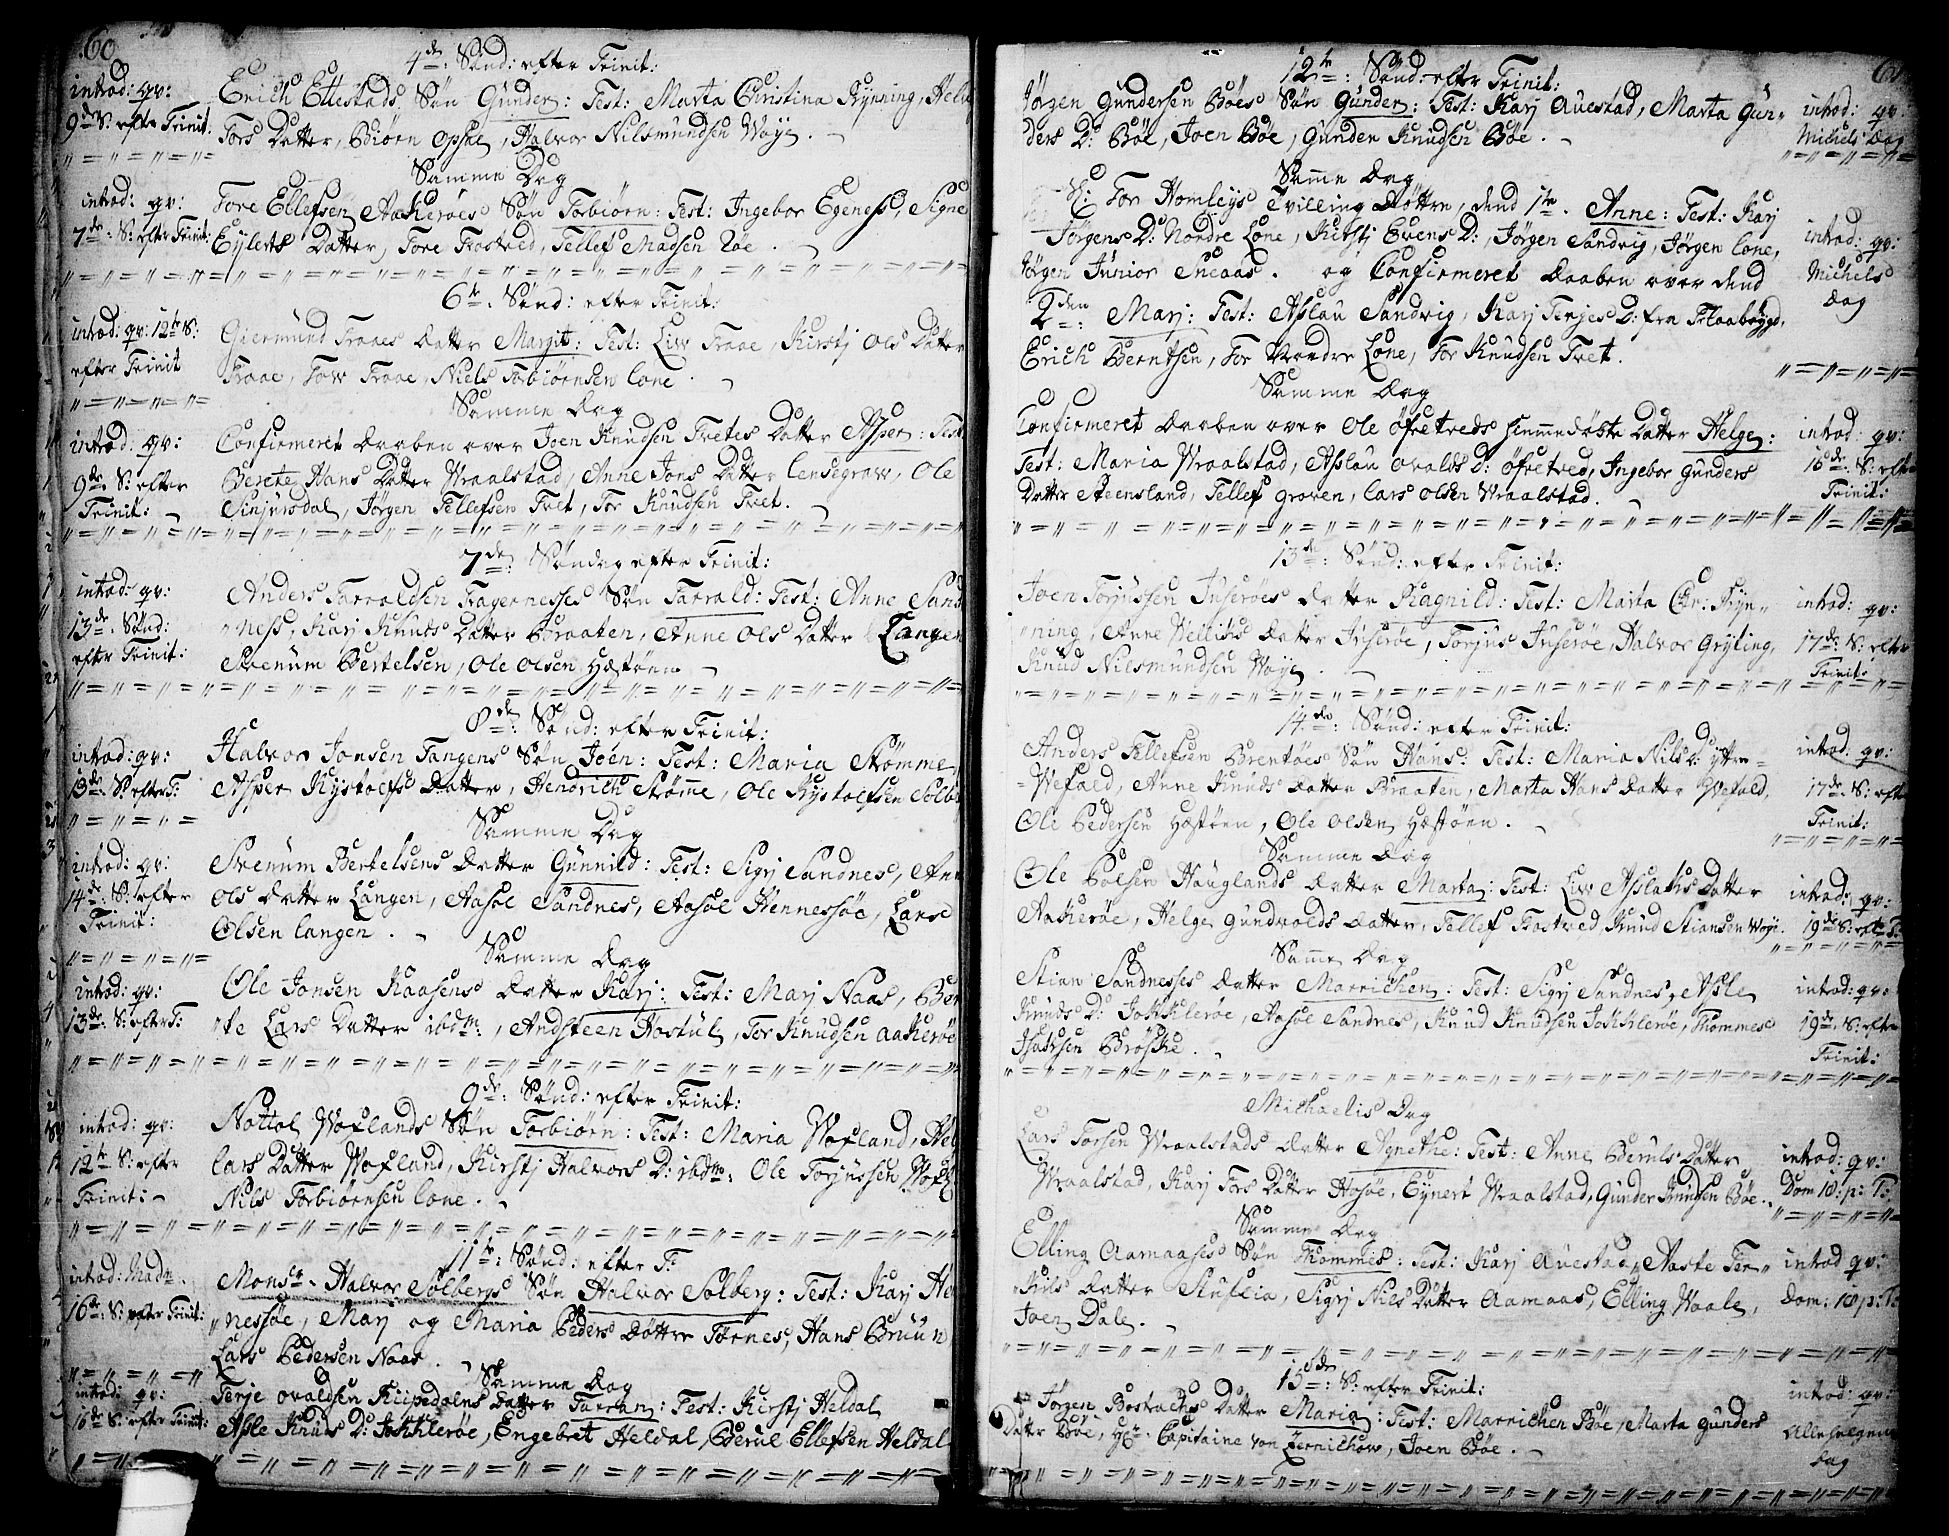 60
4de: Sønd: efter Trinit:
introd: qv:
9de S: efter Trinit:
Erich Ettestads Søn Gunder: Test: Marta Christina Rynning, Helg
Tors Datter, Biørn Opsal, Halvor Nilsmundsen Woye.
Samme Dag
introd: qv:
7de: S: efter Trinit:
Tore Ellefsen Aakeroes Søn Torbiørn: Test: Ingebor Egeness, Signe
Eylerts Datter, Tore Trostved, Tellef Madsen Loe.
6te Sønd: efter Trinit:
introd: qv: 12te S:
efter Trinit
Giermund Traaes Datter Margit: Test: Liv Traae, Kirstj Ols Datter
Traae, Tow Traae, Niels Torbiørnsen Lone.
Samme Dag
introd: qv:
9de S: efter
Trinit:
Confirmeret Daaben over Joen Knudsen Tretes Datter Asper: Test
Berete Hans Datter Vraalstad, Anne Jons Datter Lensegrav, Ole
Sinjursdal, Jørgen Tellefsen Tvet, Tor Knudsen Tvet.
7de: Søndag efter Trinit:
introd: qv:
13de Sønd:
efter Trinit:
Anders Tarraldsen Fragernesses Søn Tarrald: Test: Anne Sand
ness, Karj Knuds Datter Braaten, Anne Ols Datter Langen
Svenum Bertelsen, Ole Olsen Hæstøen
8de: Sønd: efter Trinit:
introd: qv:
13de S: efter T:
Halvor Jonsen Tangens Søn Joen: Test: Maria Strømme,
Asper Rystolfs Datter, Hendrich Strømme, Ole Rystolfsen Solb
Samme Dag
introd: qv:
14de: S: efter
Trinit:
Svenum Bertelsens Datter Gunnild: Test: Sigrj Sandnes, Ann
Ols Datter Langen, Aasol Sandnes, Aasol Hennessøe, Lars
Olsen Langen.
Samme Dag
introd: qv:
13de S: efter T:
Ole Jonsen Kaasens Datter Karj: Test: Marj Naas, Ber
te Lars Datter ibdm:, Andsteen Hostul, Tor Knudsen Aakeroe
9de: Sønd: efter Trinit:
introd: qv:
12te S: efter
Trinit:
Nottol Woflands Søn Torbiørn: Test: Maria Wofland, Hel
Lars Datter Wofland, Kirstj Halvors D: ibdm: Ole Torjussen Wofl
Nils Torbiørnsen Lone.
11te: Sønd: efter T:
introd: Madm.
16de: S: efter Trinit:
Monsr. Halvor Solbergs Søn Halvor Solberg: Test: Karj He
nessøe, Marj og Maria Peders Døttre Tornes, Hans Bruun
Lars Pedersen Naas.
Samme Dag
introd: qv:
16de S: efter Trinit:
Terje Ovaldsen Kiipedalens Datter Tarran: Test: Kirstj Heldal
Asle Knuds D: Jokkleroe, Engebret Heldal, Berul Ellefsen Heldal

12te: Sønd: efter Trinit:
Jørgen Gundersen Bøes Søn Gunder: Test: Karj Auestad, Marta Gun
ders D: Bøe, Joen Bøe, Gunder Knudsen Bøe.
introd: qv:
Michels Dag
Samme Dag
Tor Homleys Tvilling Døttre, Dend 1te. Anne: Test: Karj
Jørgens D: Nordre Lone, Kirstj Evens D:, Jørgen Sandvig, Jørgen Lone,
Jørgen Junior Sneaas. og Confirmeret Daaben over Dend
2den: Marj: Test: Aslau Sandvig, Karj Terjes D: fra Flaabøygd,
Erich Berntsen, Tor Nordre Lone, Tor Knudsen Tvet.
introd: qv:
Michels
Dag
Samme Dag
Confirmeret Daaben over Ole Øfretveds hiemmedøbte Datter Helge:
Test: Maria Vraalstad, Aslau Ovalds D: Øfretved, Ingebor Gunders
Datter Steensland, Tellef Groven, Lars Olsen Vraalstad.
introd: qv:
16de: S: efter
Trinit:
13de: Sønd: efter Trinit:
Joen Torjussen Juseroes Datter Ragnild: Test: Marta Chr: Ryn
ning, Anne Nellichs Datter Juseroe, Torjus Juseroe, Halvor Gryting,
Knud Nilsmundsen Woye
introd: qv:
17de: S: efter
Trinit:
14de: Sønd: efter Trinit:
Anders Tellefsen Brentøes Søn Hans: Test: Maria Nils D: yttre
Wefald, Anne Knuds Datter Braaten, Marta Hans Datter Wefald,
Ole Pedersen Hæstøen, Ole Olsen Hæstøen.
introd: qv:
17de: S: efter
Trinit:
Samme Dag
Ole Polsen Hauglands Datter Marta: Test: Liv Aslachs Datter
Aakeroe, Helge Gundvolds Datter, Tellef Trostved, Knud Stiansen Woye.
introd: qv:
19de S: eft: T:
Samme Dag
Stian Sandnesses Datter Marrichen: Test: Sigrj Sandnes, Asle
Knuds D: Jokkleroe, Aasol Sandnes, Knud Knudsen Jokkleroe, Thommes
Isaksen Brøske.
introd: qv:
19de S: efter
Trinit:
Michaelis Dag
Lars Torsen Vraalstads Datter Agnethe: Test: Anne Beruls Datter
Vraalstad, Karj Tors Datter Hosøe, Eynert Vraalstad, Gunder Knudsen Bøe.
introd: qv:
Dom 18: p: T:
Samme Dag
Elling Aamaases Søn Thommes: Test: Karj Auestad, Aaste Ter
kils Datter Stuflia, Sigrj Nils Datter Aamaas, Elling Vaale,
Joen Dale.
introd qv:
Dom: 18 p: T:
15de: S: efter Trinit:
Jørgen Bostrachs Datter Maria: Test: Marrichen Bøe, Marta Gunders
Datter Bøe, Hr. Capitaine von Zernichow, Joen Bøe.
introd: qv:
Allehelgens
Dag